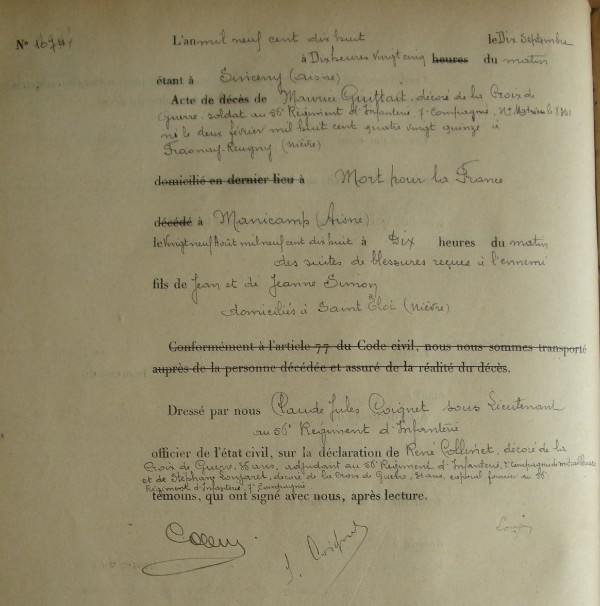 N° 1674
L'an mil neuf cent dix huit le Dix Septembre
à Dix heures vingt cinq heures du matin
étant à Sinceny (Aisne)
Acte de décès de Maurice Guittait, décoré de la Croix de
Guerre, soldat au 56e Régiment d'Infanterie, 7e Compagnie, N° Matricule
né le deux février mil huit cent quatre vingt quinze à
Fraonay-Reugny (Nièvre)
domicilié en dernier lieu à Mort pour la France
décédé à Manicamp (Aisne)
le Vingt neuf Août mil neuf cent dix huit à Dix heures du matin
des suites de blessures reçues à l'ennemi
fils de Jean et de Jeanne Simon
domiciliés à Saint Éloi (Nièvre)
Conformément à l'article 77 du Code civil, nous nous sommes transporté
auprès de la personne décédée et assuré de la réalité du décès.
Dressé par nous Claude Jules Coignet sous Lieutenant
au 56e Régiment d'Infanterie
officier de l'état civil, sur la déclaration de René Collinet, décoré de la
Croix de Guerre, ans, adjudant au 56e Régiment d'Infanterie, Compagnie de mitrailleuses
et de Stéphany, décoré de la Croix de Guerre, ans, caporal fourrier au 56e
Régiment d'Infanterie, 7e Compagnie
témoins, qui ont signé avec nous, après lecture.
J. Coignet